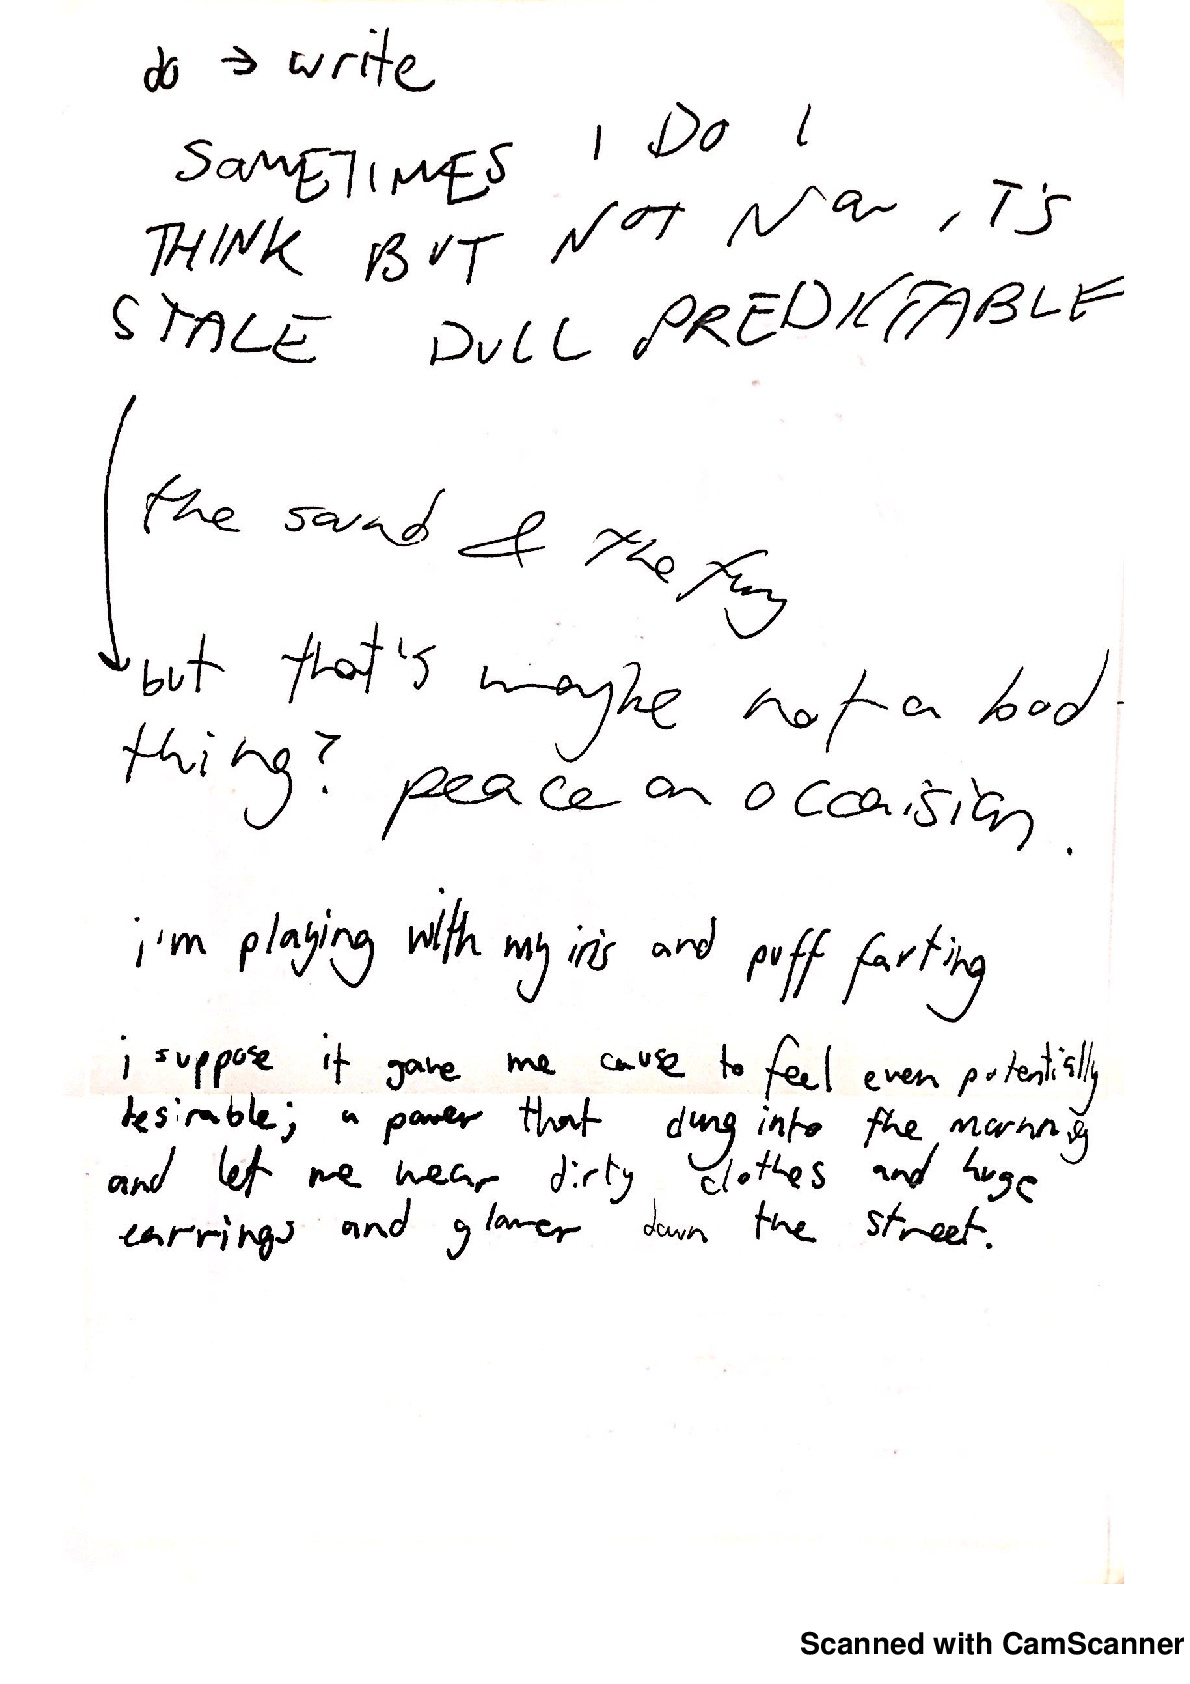 do → write
SOMETIMES I DO I
THINK BUT NOT NOW, IT'S
STALE DULL PREDICTABLE
the sound & the fury
but that's maybe not a bad
thing? peace on occaision.
i'm playing with my iris and puff farting
i suppose it gave me cause to feel even potentially
desirable; a power that dung into the morning
and let me wear dirty clothes and huge
earrings and glower down the street.
Scanned with CamScanner